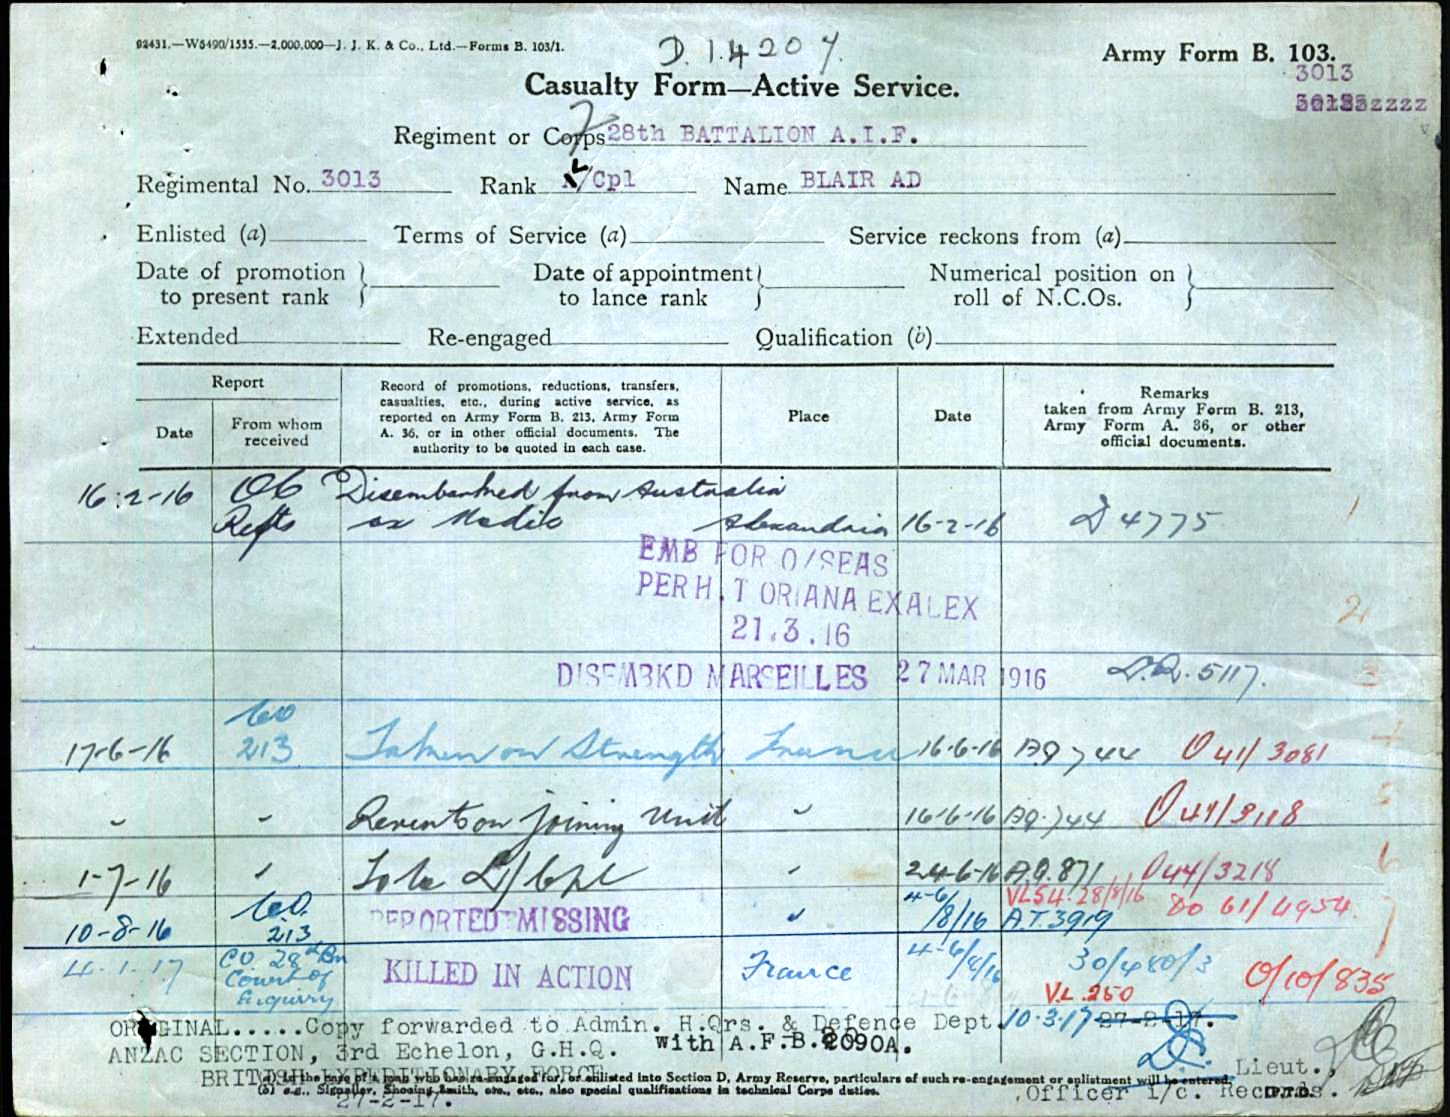 92431.—W5490/1535.—2,000,000—J. J. K. & Co., Ltd.—Forms B. 103/1.
D.14207.
Army Form B. 103.
3013
Casualty Form—Active Service.
Regiment or Corps 28th BATTALION A.I.F.
Regimental No. 3013 Rank L/Cpl Name BLAIR AD
Enlisted (a) Terms of Service (a) Service reckons from (a)
Date of promotion to present rank } Date of appointment to lance rank } Numerical position on roll of N.C.Os. }
Extended Re-engaged Qualification (b)
Report
Date
From whom received
Record of promotions, reductions, transfers, casualties, etc., during active service, as reported on Army Form B. 213, Army Form A. 36, or in other official documents. The authority to be quoted in each case.
Place
Date
Remarks taken from Army Form B. 213, Army Form A. 36, or other official documents.
16-2-16 OC Disembarked from Australia
Refts ex Medic Alexandria 16-2-16 D 4775 1
EMB FOR O/SEAS
PER H.T ORIANA EX ALEX 2
21.3.16
DISEMBKD MARSEILLES 27 MAR 1916 D.R. 5117. 3
CO
17-6-16 213 Taken on Strength France 16-6-16 A.Q 744 O 41/3081 4
" " Reverts on joining Unit " 16-6-16 A.Q. 744 O 41/3118 5
1-7-16 " To be L/Cpl " 24-6-16 A.Q. 871 O 44/3218 6
C.O. 4-6/ VL54. 28/8/16 DO 61/4954 7
10-8-16 213 REPORTED MISSING " 8/16 A.T. 3919
4.1.17 CO 28th Bn Court of Enquiry KILLED IN ACTION France 4-6/8/16 30/480/3 O/10/835
V.L. 250
ORIGINAL.....Copy forwarded to Admin. H.Qrs. & Defence Dept. 10.3.17 27-2-17.
ANZAC SECTION, 3rd Echelon, G.H.Q. with A.F.B. 2090A.
BRITISH EXPEDITIONARY FORCE
Lieut.,
(a) In the case of a man who has re-engaged for, or enlisted into Section D, Army Reserve, particulars of such re-engagement or enlistment will be entered.
(b) e.g., Signaller, Shoeing Smith, etc., etc., also special qualifications in technical Corps duties.
Officer i/c. Records.
P.T.O.
27-2-17.